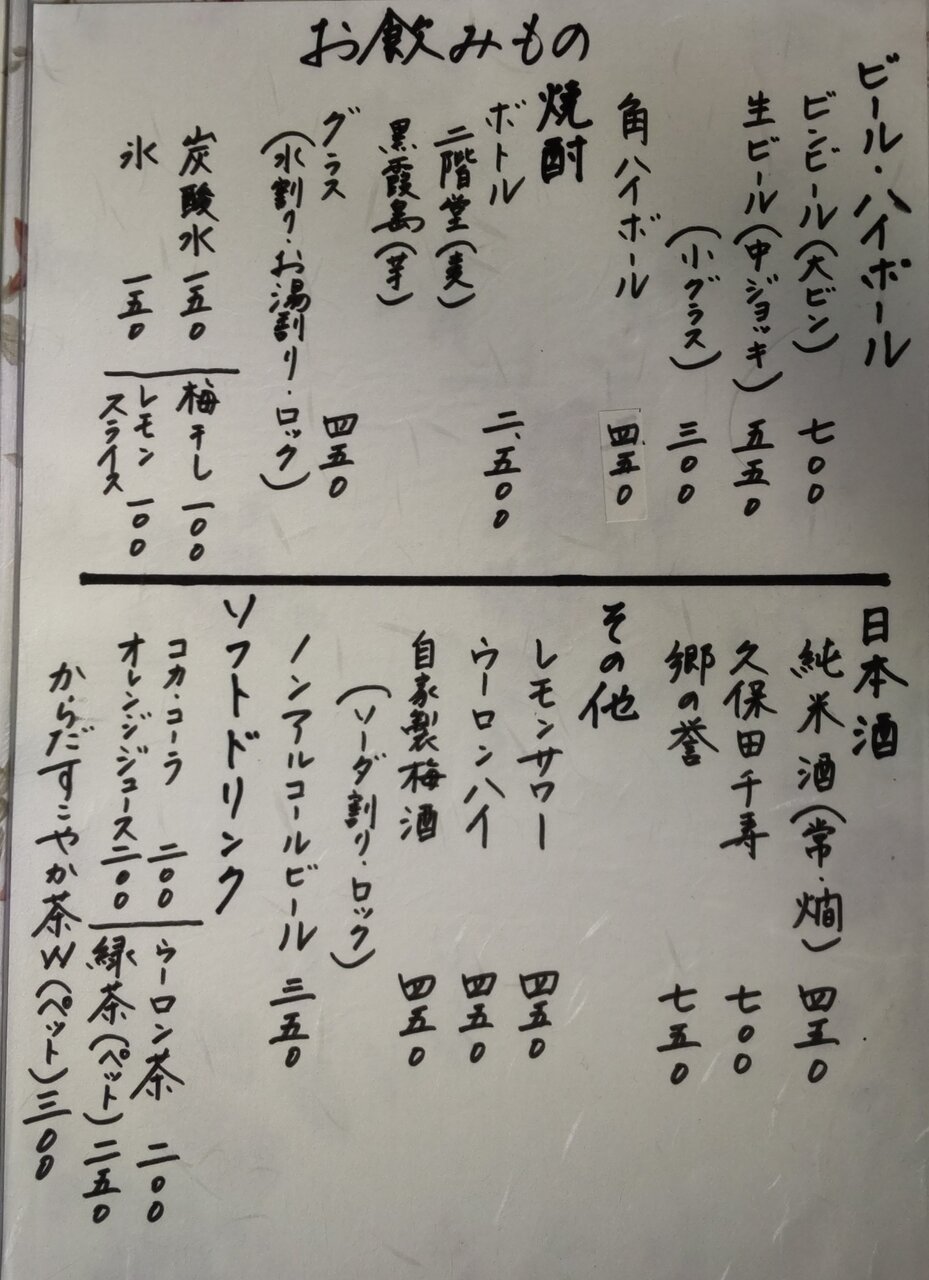 お飲みもの
ビール・ハイボール
ビンビール(大ビン) 七〇〇
生ビール(中ジョッキ) 五五〇
(小グラス) 三〇〇
角ハイボール 四五〇
焼酎
ボトル 二、五〇〇
二階堂(麦)
黒霞島(芋)
グラス 四五〇
(水割り・お湯割り・ロック)
炭酸水 一五〇
氷 一五〇
梅干し 一〇〇
レモン 一〇〇
スライス
日本酒
純米酒(常・燗) 四五〇
久保田千寿 七〇〇
郷の誉 七五〇
その他
レモンサワー 四五〇
ウーロンハイ 四五〇
自家製梅酒 四五〇
(ソーダ割り・ロック)
ノンアルコールビール 三五〇
ソフトドリンク
コカ・コーラ 二〇〇
オレンジジュース 二〇〇
ウーロン茶 二〇〇
緑茶(ペット) 二五〇
からだすこやか茶W(ペット) 三〇〇